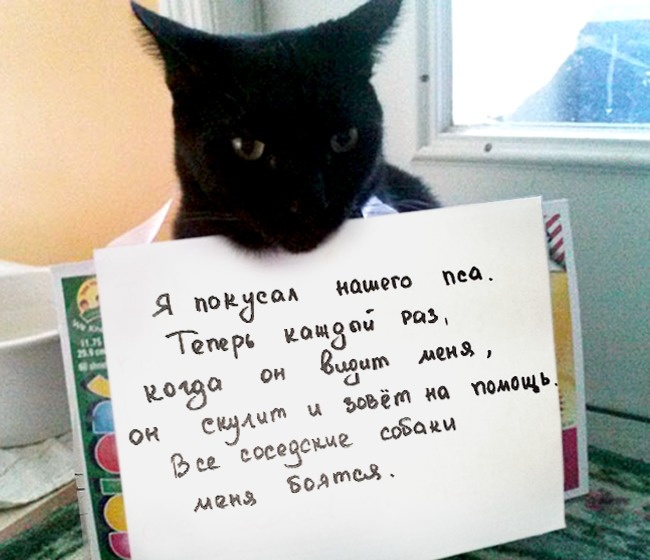 Я покусал нашего пса.
Теперь каждой раз,
когда он видит меня,
он скулит и зовёт на помощь.
Все соседские собаки
меня боятся.
11.75